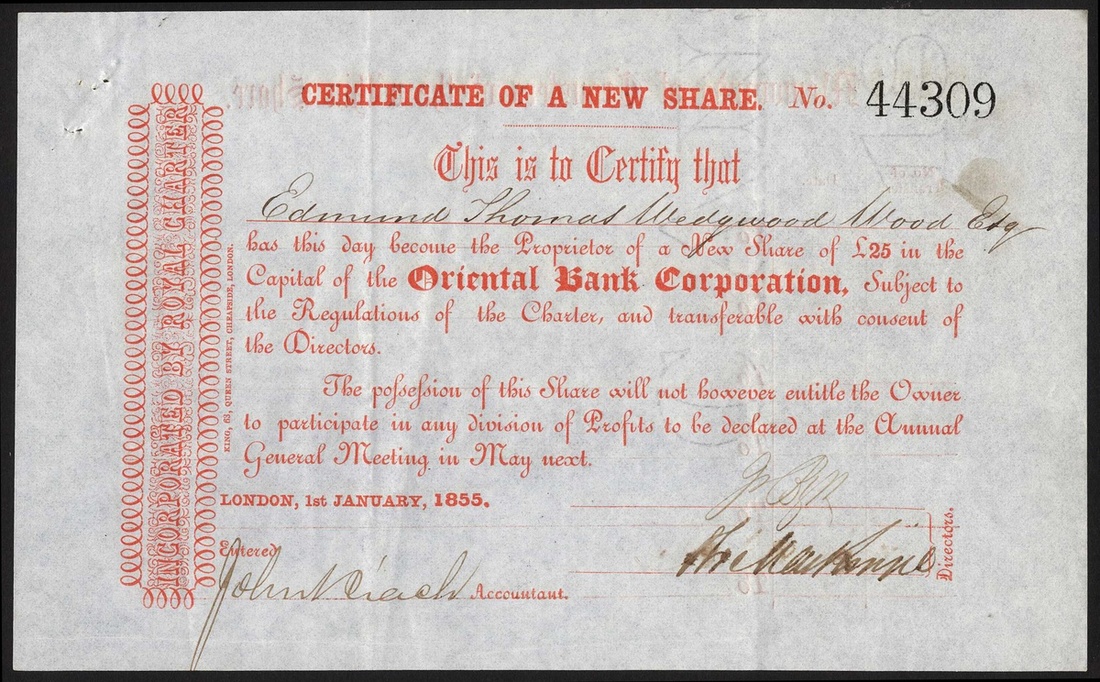 CERTIFICATE OF A NEW SHARE. No. 44309
This is to Certify that
Edmund Thomas Wedgwood Wood Esq
has this day become the Proprietor of a New Share of £25 in the
Capital of the Oriental Bank Corporation, Subject to
the Regulations of the Charter, and transferable with consent of
the Directors.
The possession of this Share will not however entitle the Owner
to participate in any division of Profits to be declared at the Annual
General Meeting in May next.
LONDON, 1st JANUARY, 1855.
Entered
John
Accountant.
Directors.
INCORPORATED BY ROYAL CHARTER
KING, 63, QUEEN STREET, CHEAPSIDE, LONDON.